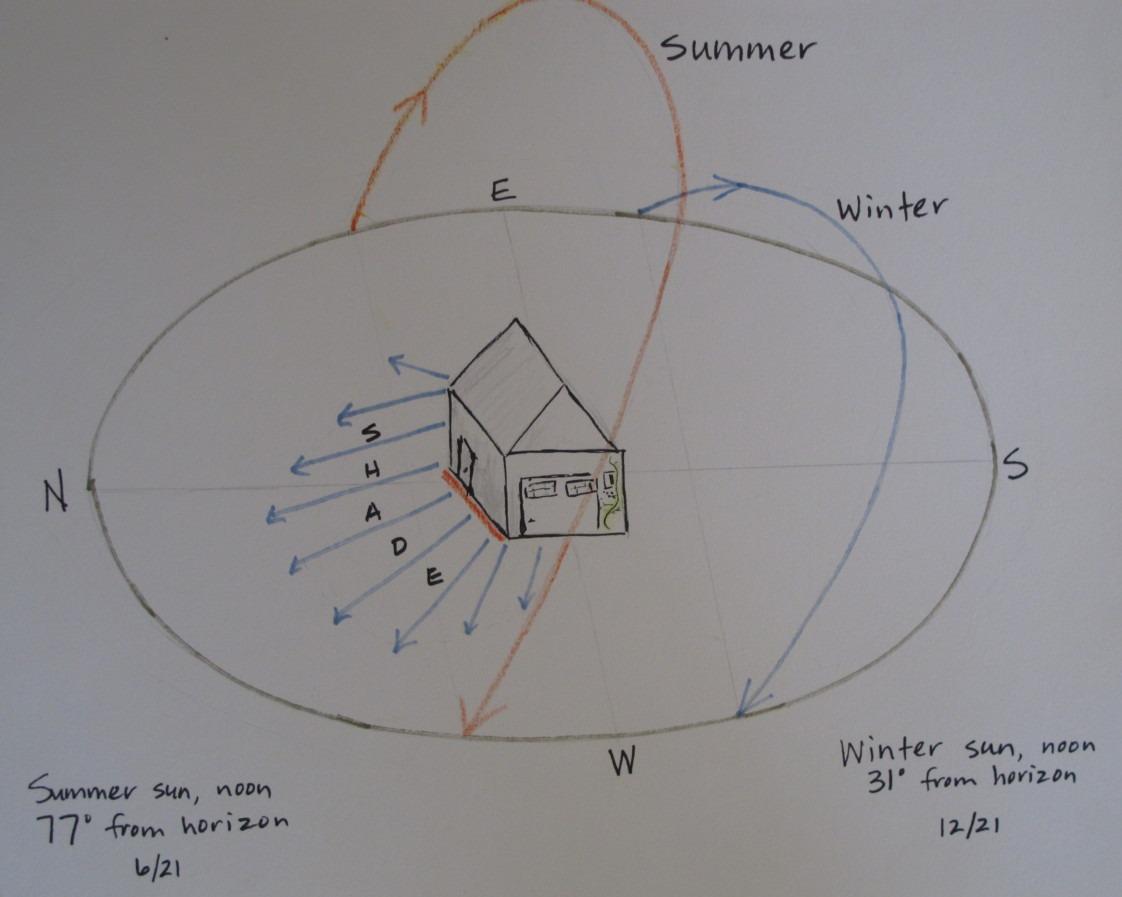 Summer
E
Winter
N
S
S
H
A
D
E
W
Summer sun, noon
77° from horizon
6/21
Winter sun, noon
31° from horizon
12/21